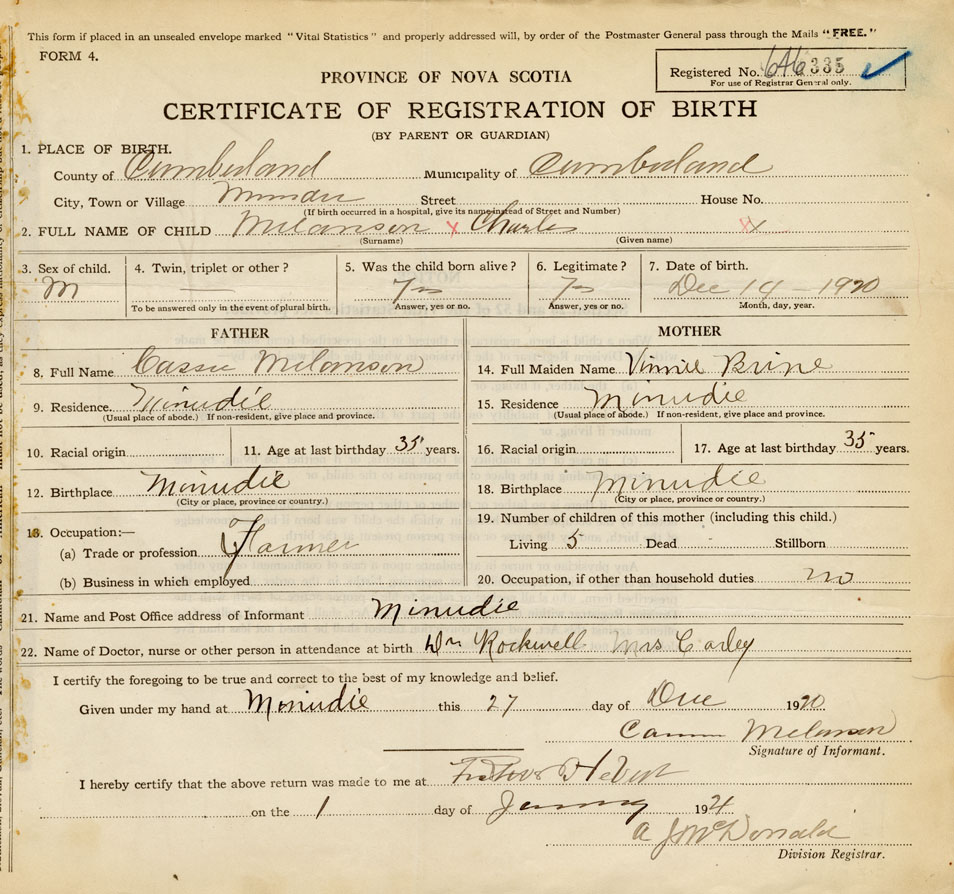 This form if placed in an unsealed envelope marked "Vital Statistics" and properly addressed will, by order of the Postmaster General pass through the Mails "FREE."
FORM 4.
Registered No. 646335
For use of Registrar General only.
PROVINCE OF NOVA SCOTIA
CERTIFICATE OF REGISTRATION OF BIRTH
(BY PARENT OR GUARDIAN)
1. PLACE OF BIRTH.
County of Cumberland Municipality of Cumberland
City, Town or Village Street House No.
(If birth occurred in a hospital, give its name instead of Street and Number)
2. FULL NAME OF CHILD Melanson x Charles
(Surname) (Given name)
3. Sex of child. 4. Twin, triplet or other? 5. Was the child born alive? 6. Legitimate? 7. Date of birth.
M — Yes Yes Dec 14 - 1920
To be answered only in the event of plural birth. Answer, yes or no. Answer, yes or no. Month, day, year.
FATHER
8. Full Name Melanson
9. Residence Minudie
(Usual place of abode.) If non-resident, give place and province.
10. Racial origin 11. Age at last birthday 35 years.
12. Birthplace Minudie
(City or place, province or country.)
13. Occupation:—
(a) Trade or profession Farmer
(b) Business in which employed
MOTHER
14. Full Maiden Name Vinnie Brine
15. Residence Minudie
(Usual place of abode.) If non-resident, give place and province.
16. Racial origin 17. Age at last birthday 35 years.
18. Birthplace Minudie
(City or place, province or country.)
19. Number of children of this mother (including this child.)
Living 5 Dead Stillborn
20. Occupation, if other than household duties no
21. Name and Post Office address of Informant Minudie
22. Name of Doctor, nurse or other person in attendance at birth Dr Rockwell Mrs
I certify the foregoing to be true and correct to the best of my knowledge and belief.
Given under my hand at Minudie this 27 day of Dec 1920
Melanson
Signature of Informant.
I hereby certify that the above return was made to me at
on the 1 day of 192
A J McDonald
Division Registrar.